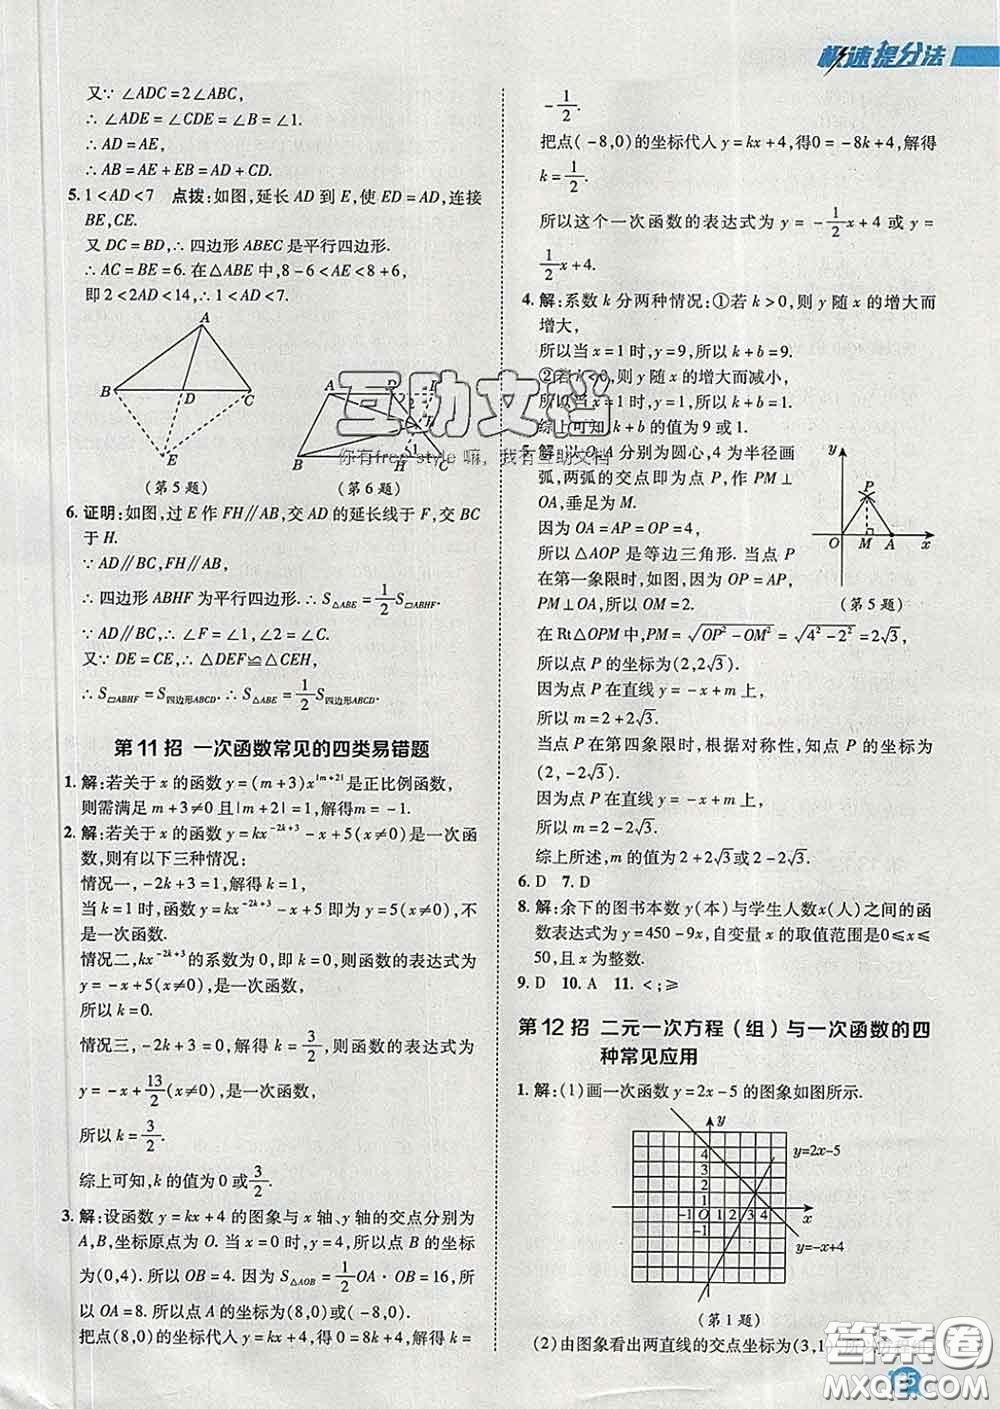 极速提分法
又∵ ∠ADC=2∠ABC,
∴ ∠ADE=∠CDE=∠B=∠1.
∴ AD=AE,
∴ AB=AE+EB=AD+CD.
5. 1<AD<7 点拨:如图,延长 AD 到 E,使 ED=AD,连接
BE,CE.
又 DC=BD,∴ 四边形 ABEC 是平行四边形.
∴ AC=BE=6. 在△ABE 中,8-6<AE<8+6,
即 2<2AD<14,∴ 1<AD<7.
A
B D C
E
(第 5 题)
A D F
2
E
1
B H C
(第 6 题)
6. 证明:如图,过 E 作 FH∥AB,交 AD 的延长线于 F,交 BC
于 H.
∵ AD∥BC,FH∥AB,
∴ 四边形 ABHF 为平行四边形. ∴ S△ABE=1/2 S▱ABHF.
∵ AD∥BC,∴ ∠F=∠1,∠2=∠C.
又∵ DE=CE,∴ △DEF≌△CEH,
∴ S▱ABHF=S四边形ABCD. ∴ S△ABE=1/2 S四边形ABCD.
第 11 招 一次函数常见的四类易错题
1. 解:若关于 x 的函数 y=(m+3)x^|m+2| 是正比例函数,
则需满足 m+3≠0 且|m+2|=1,解得 m=-1.
2. 解:若关于 x 的函数 y=kx^(-2k+3)-x+5(x≠0)是一次函
数,则有以下三种情况:
情况一,-2k+3=1,解得 k=1,
当 k=1 时,函数 y=kx^(-2k+3)-x+5 即为 y=5(x≠0),不
是一次函数.
情况二,kx^(-2k+3) 的系数为 0,即 k=0,则函数的表达式为
y=-x+5(x≠0),是一次函数,
所以 k=0.
情况三,-2k+3=0,解得 k=3/2,则函数的表达式为
y=-x+13/2(x≠0),是一次函数,
所以 k=3/2.
综上可知,k 的值为 0 或 3/2.
3. 解:设函数 y=kx+4 的图象与 x 轴、y 轴的交点分别为
A,B,坐标原点为 O. 当 x=0 时,y=4,所以点 B 的坐标
为(0,4). 所以 OB=4. 因为 S△AOB=1/2 OA·OB=16,所
以 OA=8. 所以点 A 的坐标为(8,0)或(-8,0).
把点(8,0)的坐标代入 y=kx+4,得 0=8k+4,解得 k=
-1/2.
把点(-8,0)的坐标代入 y=kx+4,得 0=-8k+4,解得
k=1/2.
所以这个一次函数的表达式为 y=-1/2 x+4 或 y=
1/2 x+4.
4. 解:系数 k 分两种情况:①若 k>0,则 y 随 x 的增大而
增大,
所以当 x=1 时,y=9,所以 k+b=9.
②若 k<0,则 y 随 x 的增大而减小,
所以当 x=1 时,y=1,所以 k+b=1.
综上可知 k+b 的值为 9 或 1.
5. 解:以 O,A 分别为圆心,4 为半径画
弧,两弧的交点即为点 P,作 PM⊥
OA,垂足为 M.
因为 OA=AP=OP=4,
所以△AOP 是等边三角形. 当点 P
在第一象限时,如图,因为 OP=AP,
PM⊥OA,所以 OM=2.
y
P
O M A x
(第 5 题)
在 Rt△OPM 中,PM=√(OP²-OM²)=√(4²-2²)=2√3,
所以点 P 的坐标为(2,2√3).
因为点 P 在直线 y=-x+m 上,
所以 m=2+2√3.
当点 P 在第四象限时,根据对称性,知点 P 的坐标为
(2,-2√3).
因为点 P 在直线 y=-x+m 上,
所以 m=2-2√3.
综上所述,m 的值为 2+2√3或 2-2√3.
6. D 7. D
8. 解:余下的图书本数 y(本)与学生人数x(人)之间的函
数表达式为 y=450-9x,自变量 x 的取值范围是0≤x≤
50,且 x 为整数.
9. D 10. A 11. <;≥
第 12 招 二元一次方程(组)与一次函数的四
种常见应用
1. 解:(1)画一次函数 y=2x-5 的图象如图所示.
y
4
3
2
1
-1 O 1 2 3 4 x
-1
y=2x-5
y=-x+4
(第 1 题)
(2)由图象看出两直线的交点坐标为(3,1
互助文档
你有free style 嘛,我有互助文档
答案圈
MXQE.COM